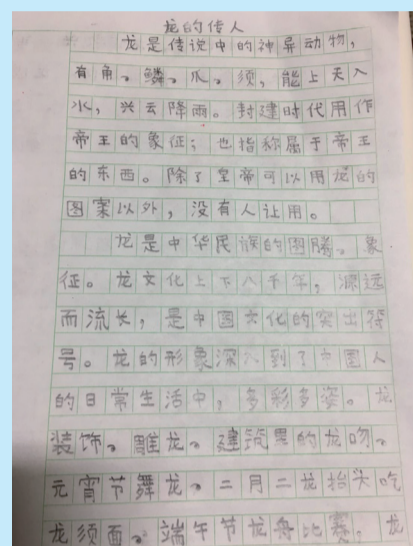 龙的传人
龙是传说中的神异动物，
有角、鳞、爪、须，能上天入
水，兴云降雨。封建时代用作
帝王的象征；也指称属于帝王
的东西。除了皇帝可以用龙的
图案以外，没有人让用。
龙是中华民族的图腾、象
征。龙文化上下八千年，源远
而流长，是中国文化的突出符
号。龙的形象深入到了中国人
的日常生活中，多彩多姿。龙
装饰、雕龙、建筑里的龙吻、
元宵节舞龙、二月二龙抬头吃
龙须面、端午节龙舟比赛，龙